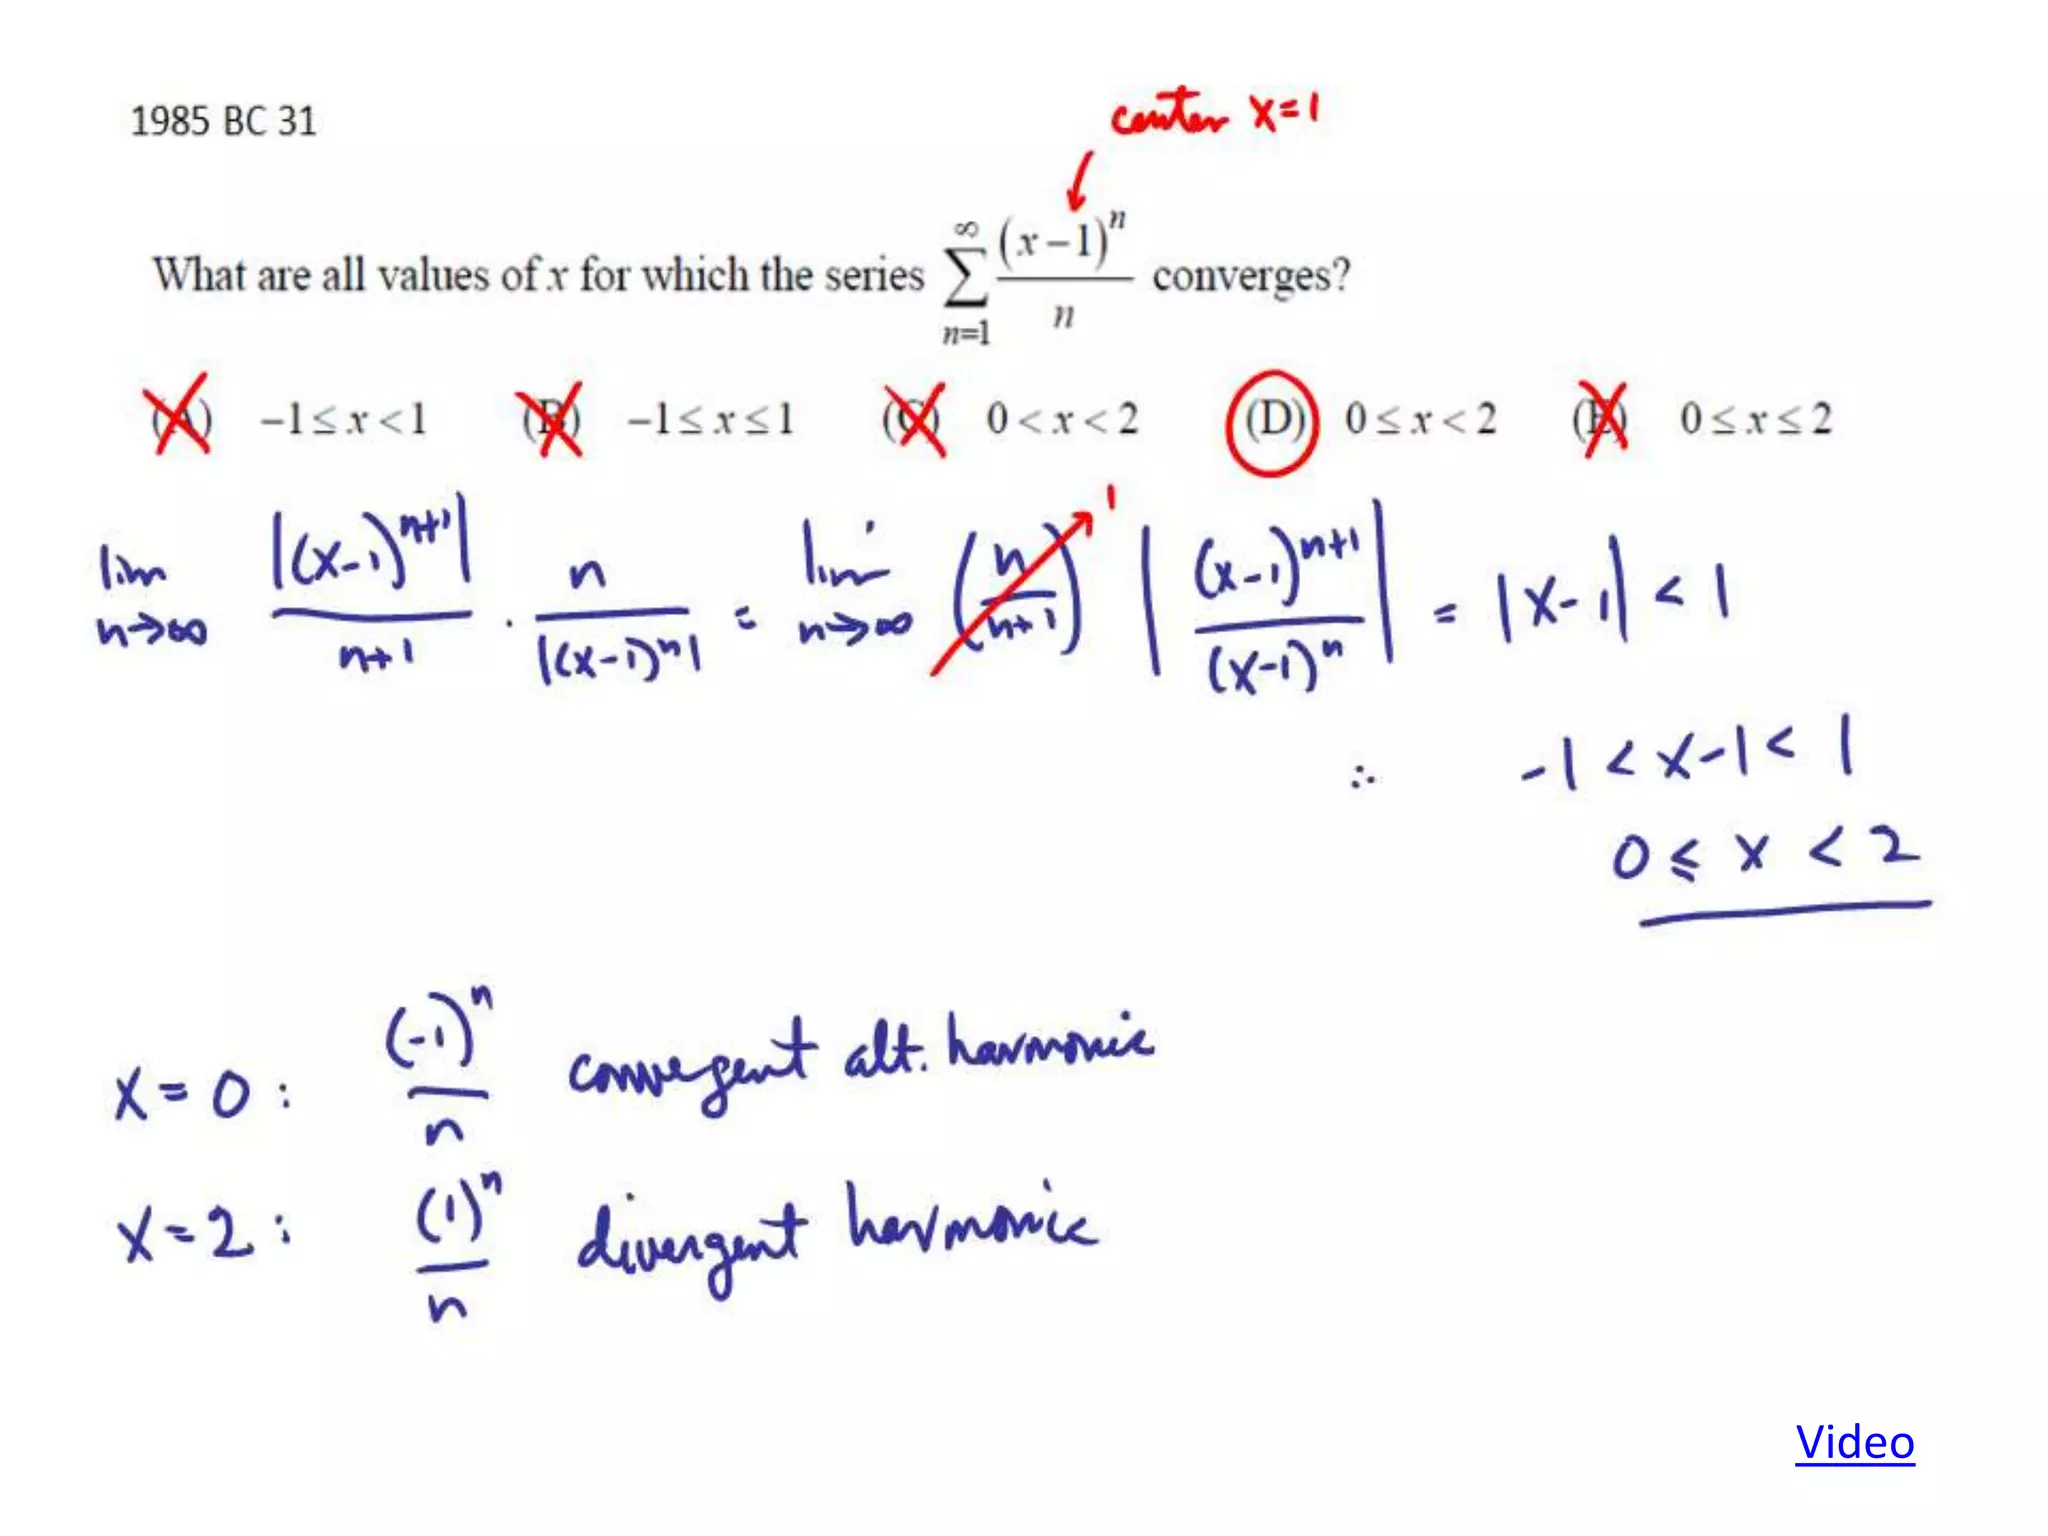 center x=1
1985 BC 31
What are all values of x for which the series ∑_{n=1}^{∞} (x−1)^n / n converges?
(A) −1 ≤ x < 1 (B) −1 ≤ x ≤ 1 (C) 0 < x < 2 (D) 0 ≤ x < 2 (E) 0 ≤ x ≤ 2
lim_{n→∞} |(x-1)^{n+1}| / n+1 · n / |(x-1)^n| = lim_{n→∞} (n / n+1) 1 |(x-1)^{n+1} / (x-1)^n| = |x-1| < 1
∴ -1 < x-1 < 1
0 ≤ x < 2
x=0: (-1)^n / n convergent alt. harmonic
x=2: (1)^n / n divergent harmonic
Video